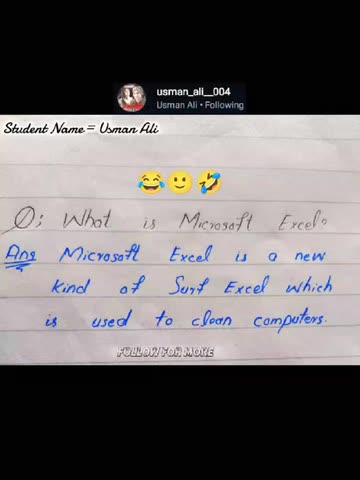 usman_ali__004
Usman Ali • Following
Student Name = Usman Ali
😂🙂🤣
Q; What is Microsoft Excel?
Ans Microsoft Excel is a new
kind of Surf Excel which
is used to clean computers.
FOLLOW FOR MORE